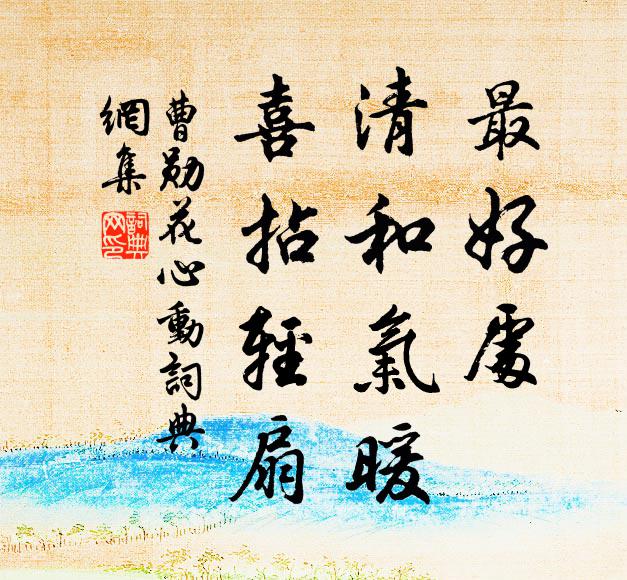 最好處
清和氣暖
喜拈輕扇
曹勛花心動詞典
網集
詞典
网印